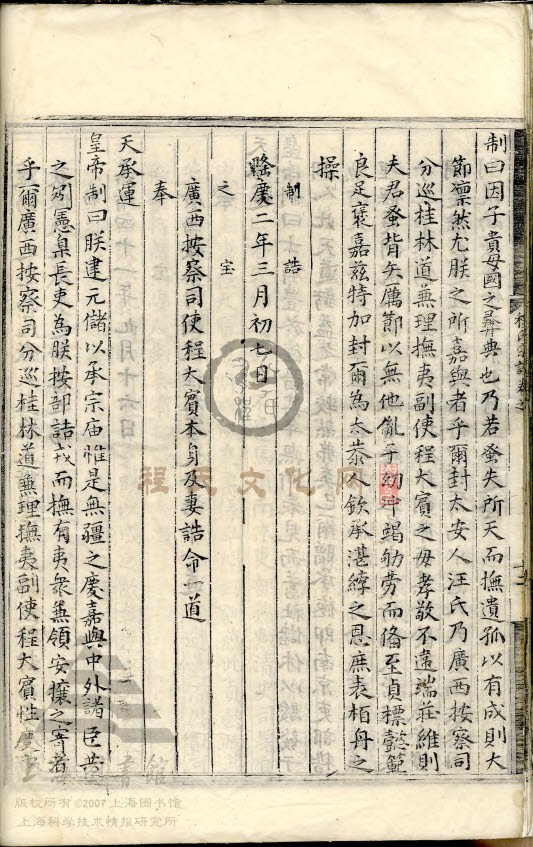 制曰因子貴母國之彞典也乃若蚤失所天而撫遺孤以有成則大
節凛然尤朕之所嘉與者乎爾封太安人汪氏乃廣西按察司
分巡桂林道蕪理撫夷副使程大賓之母孝敬不違端莊維則
夫君蚤背矢厲節以無他胤子幼冲竭劬勞而俻至貞標懿範
良足褒嘉兹特加封爾為太恭人欽承湛綍之恩庶表柏舟之
操
制誥
隆慶二年三月初七日
之宝
廣西按察司使程大賓本身及妻誥命一道
奉
天承運
皇帝制曰朕建元儲以承宗庙惟是無疆之慶嘉與中外諸臣共
之矧憲臬長吏為朕按部詰戎而撫有夷衆蕪領安攘之寄者
乎爾廣西按察司分巡桂林道蕪理撫夷副使程大賓性度
程氏文化网
版权所有©2007 上海图书馆
上海科学技术情报研究所